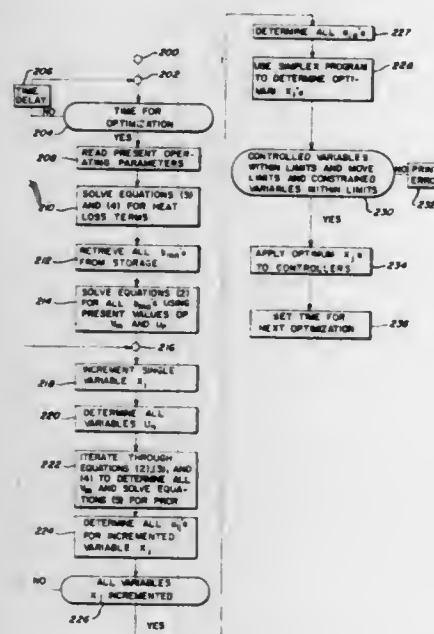 200
202
206
TIME
DELAY
NO
204
TIME FOR
OPTIMIZATION
YES
208
READ PRESENT OPER-
ATING PARAMETERS
210
SOLVE EQUATIONS (3)
AND (4) FOR HEAT
LOSS TERMS
212
RETRIEVE ALL
FROM STORAGE
214
SOLVE EQUATIONS (2)
FOR ALL USING
PRESENT VALUES OF
AND
216
218
INCREMENT SINGLE
VARIABLE Xj
220
DETERMINE ALL
VARIABLES
222
ITERATE THROUGH
EQUATIONS (2),(3), AND
(4) TO DETERMINE ALL
AND SOLVE EQUA-
TIONS (5) FOR
224
DETERMINE ALL
FOR INCREMENTED
VARIABLE Xj
NO
ALL VARIABLES
INCREMENTED
226
YES
DETERMINE ALL
227
USE SIMPLEX PROGRAM
TO DETERMINE OPTI-
228
CONTROLLED VARIABLES
WITHIN LIMITS AND MOVE
LIMITS AND CONSTRAINED
VARIABLES WITHIN LIMITS
NO
PRINT
ERROR
230
YES
APPLY OPTIMUM Xj's
TO CONTROLLERS
234
SET TIME FOR
NEXT OPTIMIZATION
236